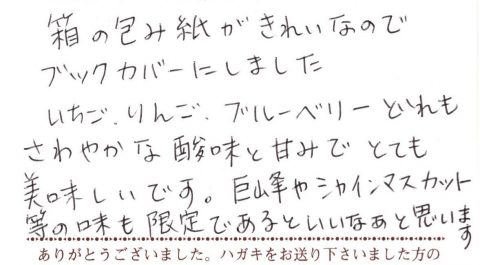 箱の包み紙がきれいなので
ブックカバーにしました
いちご、りんご、ブルーベリーどれも
さわやかな酸味と甘みでとても
美味しいです。巨峰やシャインマスカット
等の味も限定であるといいなぁと思います
ありがとうございました。ハガキをお送り下さいました方の